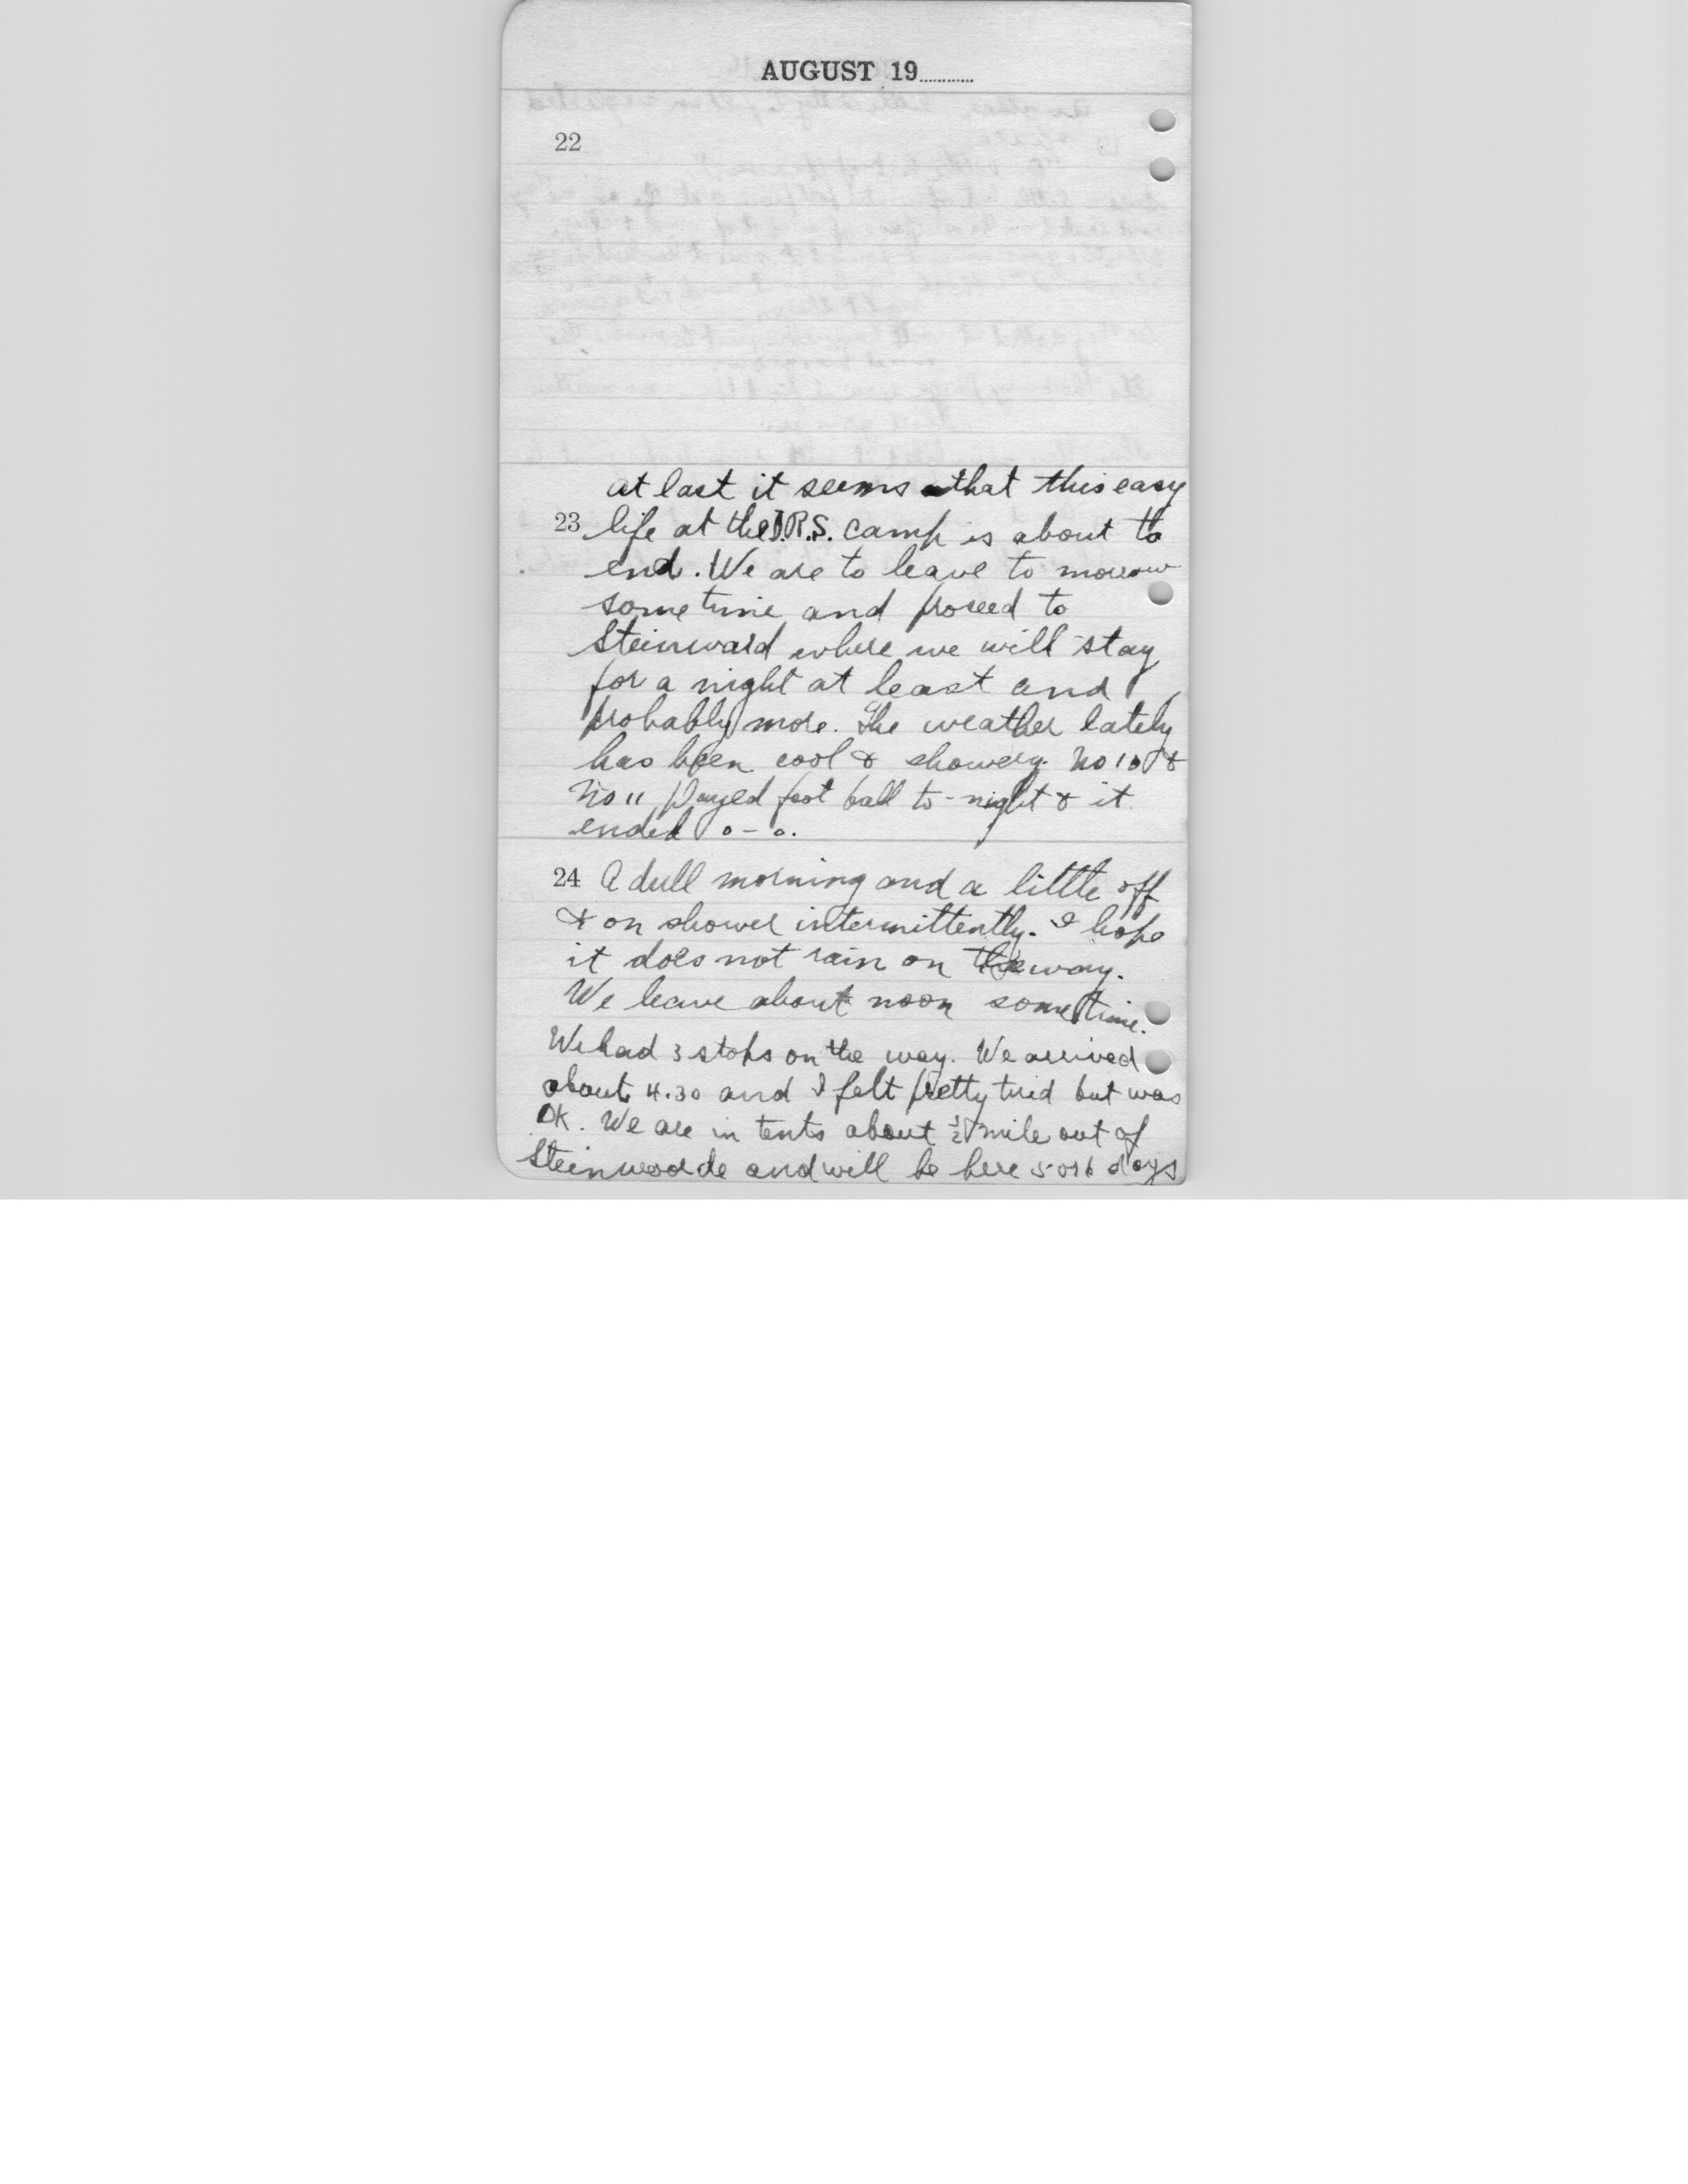 AUGUST 19...........
22
at last it seems that this easy
23 life at the D.R.S. camp is about to
end. We are to leave to morrow
some time and proceed to
Steinward where we will stay
for a night at least and
probably more. The weather lately
has been cool & showery. No 10 &
No 11 played foot ball to-night & it
ended 0-0.
24 A dull morning and a little off
& on shower intermittently. I hope
it does not rain on the way.
We leave about noon sometime.
We had 3 stops on the way. We arrived
about 4.30 and I felt pretty tired but was
OK. We are in tents about ½ mile out of
Steenwoorde and will be here 5 or 6 days